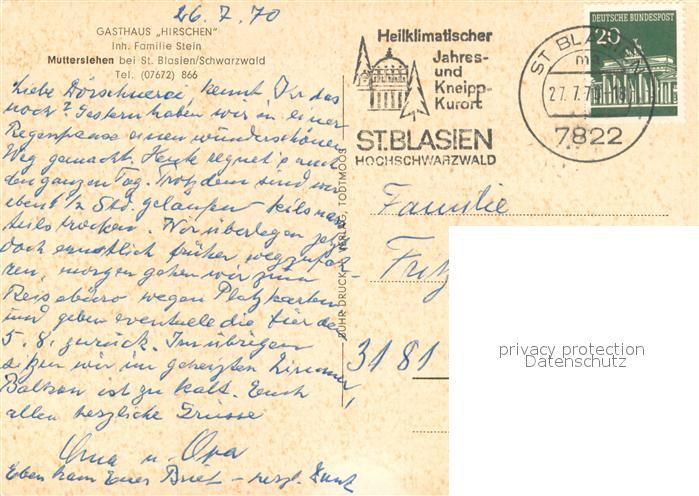 26.7.70
GASTHAUS „HIRSCHEN"
Inh. Familie Stein
Mutterslehen bei St. Blasien/Schwarzwald
Tel. (07672) 866
Liebe Dörschnerei, kennt Ihr das
noch? Gestern haben wir in einer
Regenpause einen wunderschönen
Weg gemacht. Heute regnet's auch
den ganzen Tag. Trotzdem sind wir
eben 1/2 Std. gelaufen teils nass
teils trocken. Wir überlegen jetzt
doch ernstlich früher wegzufah-
ren, morgen gehen wir zum
Reisebüro wegen Platzkarten
und geben eventuell die für den
5.8. zurück. Im übrigen
sitzen wir im geheizten Zimmer,
Balkon ist zu kalt. Euch
allen herzliche Grüsse
Oma u. Opa
Eben kam Euer Brief - herzl. Dank
BUHR DRUCK u. VERLAG, TODTMOOS
Heilklimatischer
Jahres-
und
Kneipp-
Kurort
ST.BLASIEN
HOCHSCHWARZWALD
ST BLASIEN
ma
27.7.70-18
7822
DEUTSCHE BUNDESPOST
20
Familie
Fritz
3181
privacy protection
Datenschutz